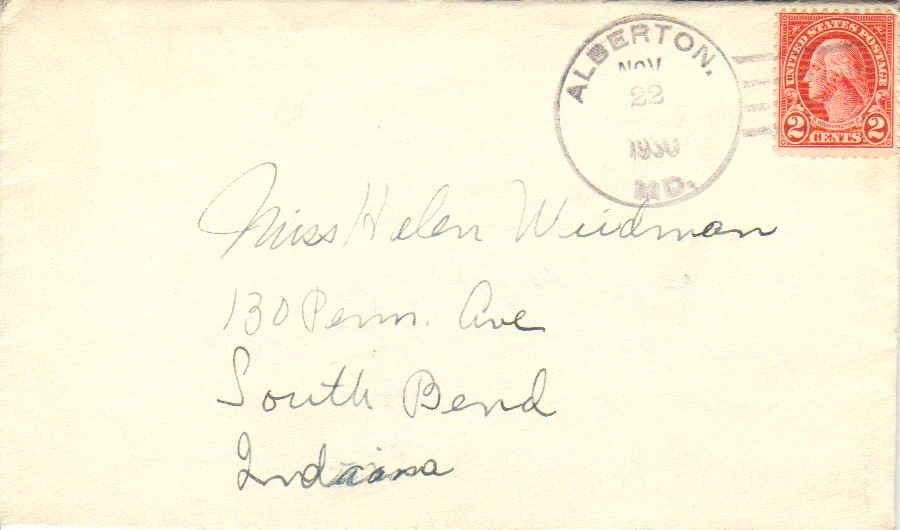 ALBERTON.
NOV
22
1930
MD.
UNITED STATES POSTAGE
2 CENTS 2
Miss Helen Weidman
130 Penn. Ave
South Bend
Indiana